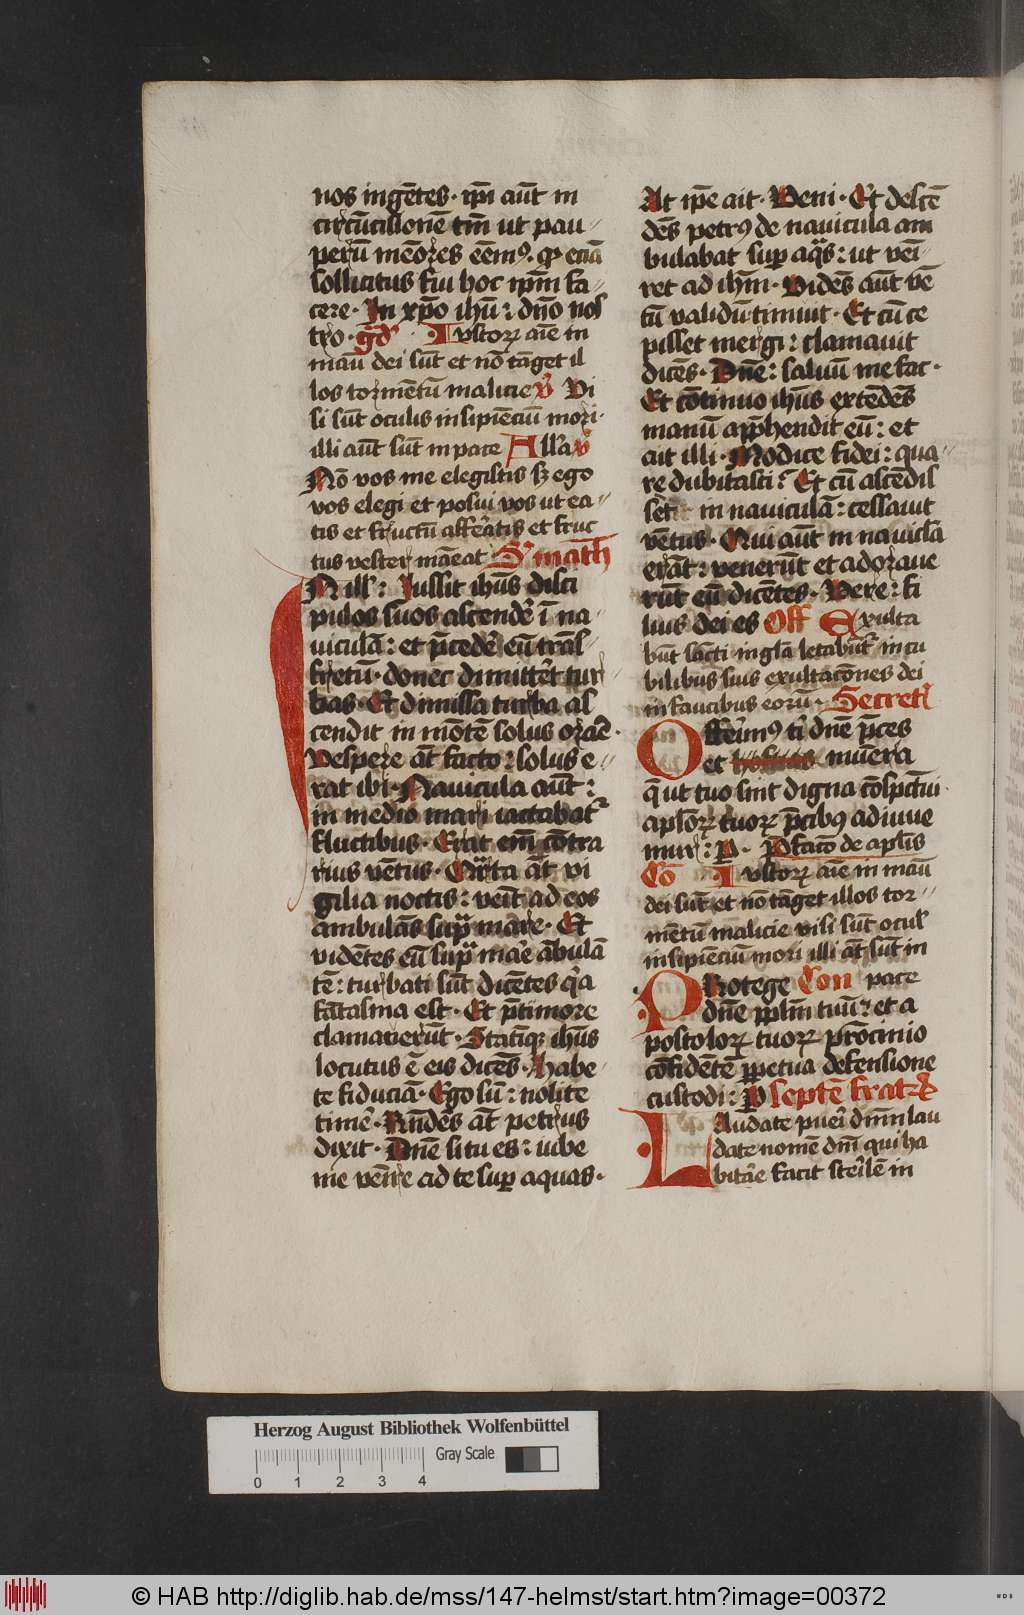 nos in gētes · ip̄i aūt in
circūcisionē tm̄ ut pau-
perū mēores eēmꝰ · qp̄ etiā
sollicitus fui hoc ip̄m fa-
cere · In xp̄o ihū : dn̄o nos
tro · gd̄ Iustoꝝ aīe in
manū dei sūt et nō tāget il
los tormētū malicie v̄ Vi
si sūt oculis insipiēciū mori ·
illi aūt sūt in pace All'a v̄
Nō vos me elegistis sꝫ ego
vos elegi et posui vos ut ea-
tis et fructū afferatis et fruc
tus vester māeat · S' math
N ill' : Iussit ihūs disci
pulos suos ascendē ī na-
viculā : et p̄cedē eū trās-
fretū · donec dimittēt tur
bas · Et dimissa turba as
cendit in mōtē solus orare ·
Vespere aūt facto : solus e-
rat ibi · Navicula aūt :
in medio mari iactabat'
fluctibus · Erat em̄ cōtra
rius vētus · Qͣrta aūt vi
gilia noctis : veīt ad eos
ambulās supͣ mare · Et
vidētes eū supͣ mare ābulā
tē : turbati sūt dicētes qͥa
fātasma est · Et p̄ timore
clamaverūt · Statīqꝫ ihūs
locutus ē eis dicēs · Habe-
te fiduciā · Ego sū : nolite
timē · Rn̄dēs aūt petrus
dixit · Dn̄e si tu es : iube
me veīre ad te sup̄ aquas ·
At ip̄e ait · Veni · Et descē
dēs petrꝰ de navicula am
bulabat sup̄ aqͣs : ut veī-
ret ad ihm̄ · Vidēs aūt vē
tū validū timuit · Et cū ce
pisset mergi : clamavit
dicēs · Dn̄e : salvū me fac ·
Et cōtinuo ihūs extēdēs
manū app̄hendit eū : et
ait illi · Modice fidei : qua-
re dubitasti ? Et cū ascēdis
sēt in naviculā : cessavit
vētus · Qui aūt in navicla
erāt : venerūt et adorave
rūt eū dicētes · Vere : fi
lius dei es Off Exulta
būt sācti in gl'a letabūt' in cu
bilibus suis exultacōnes dei
in faucibus eorū · Secret'
Offeimꝰ tͥ dn̄e p̄ces
et hostias muēra
q̄ ut tuo sint digna cōspc̄tui ·
apl'oꝝ tuoꝝ p̄cibꝰ adiuve
mur : P · P̄faco de apl'is
Co Iustoꝝ aīe in manū
dei sūt et nō tāget illos tor-
mētū malicie visi sūt ocul'
insipiēciū mori illi aūt sūt in
PRotege Con pace
dn̄e pp̄lm tuū : et a
postoloꝝ tuoꝝ pr̄ocinio
cōfidētē ꝑpetua defensione
custodi : P septē fratꝝ
LAudate pueri dm̄ lau
date nomē dm̄ qui ha
bitare facit sterilē in
Herzog August Bibliothek Wolfenbüttel
Gray Scale
0 1 2 3 4
© HAB http://diglib.hab.de/mss/147-helmst/start.htm?image=00372